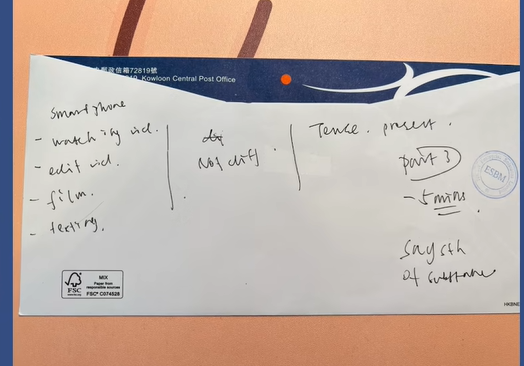 郵政信箱72819號
Kowloon Central Post Office
smartphone
- watching vid.
- edit vid.
- film.
- texting.
Not diff.
Tense. present.
part 3
- 5 mins
say sth
of substance
ESBM
FSC
MIX
Paper from
responsible sources
FSC® C074528